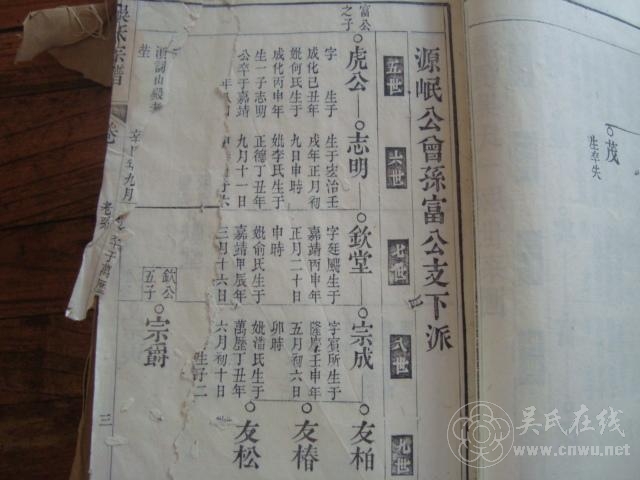 源岷公曾孫富公支下派
五世
六世
七世
八世
九世
富公
之子
虎公
志明
欽堂
宗成
友柏
字 生于
成化己丑年
妣何氏生于
成化丙申年
生一子志明
公卒于嘉靖
生于宏治壬
戌年正月初
九日申時
妣李氏生于
正德丁丑年
九月十一日
字廷颺生于
嘉靖丙申年
正月二十日
申時
妣俞氏生于
嘉靖甲辰年
三月十六日
字賓所生于
隆慶壬申年
五月初六日
卯時
妣潘氏生于
萬歷丁丑年
六月初十日
生子二
友椿
友松
欽公
五子
宗爵
三
茂
生卒失
吴氏在线
www.cnwu.net